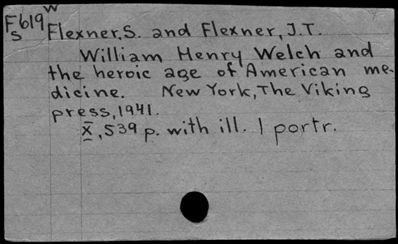 W
F619 Flexner, S. and Flexner, J.T.
S
William Henry Welch and
the heroic age of American me-
dicine. New York, The Viking
press, 1941.
X, 539 p. with ill. 1 portr.